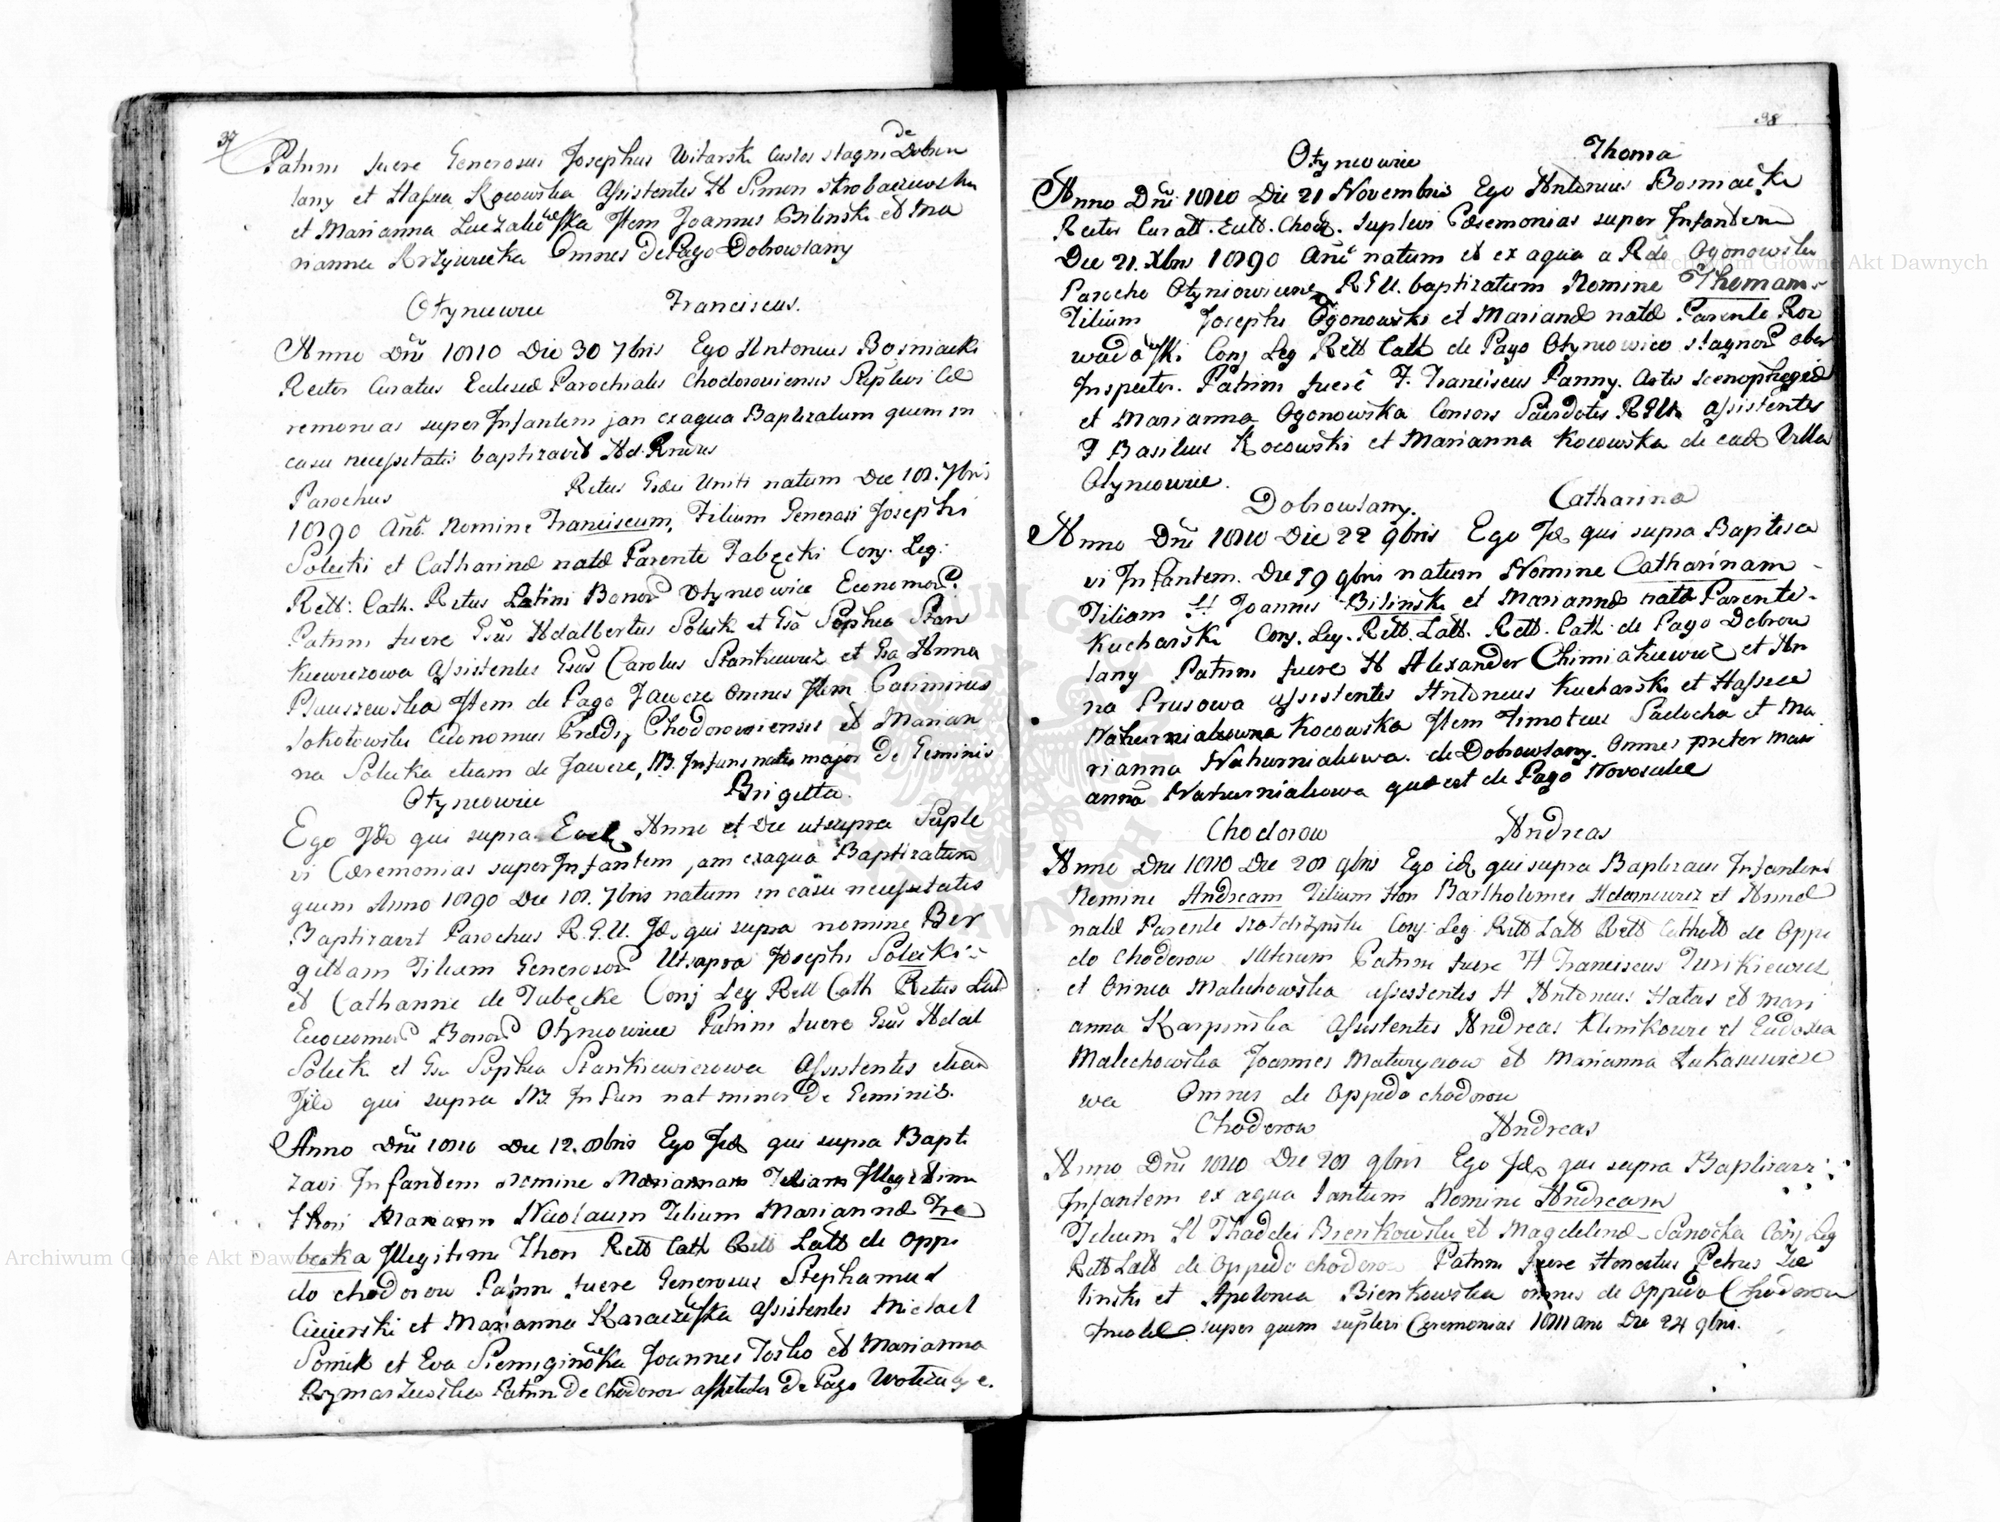 37
Patrini fuere Generosus Josephus Witarski Custos stagni de Dobrow
lany et Hafsia Kocowska Assistentes H Simon Strobaczewski
et Marianna Luczakiewska Item Joannes Bilinski et Ma
rianna Krzywiecka Omnes de Pago Dobrowlany
Otyniowice Franciscus.
Anno Dni 1810 Die 30 7bris Ego Antonius Bosniacki
Rector Curatus Ecclesiæ Parochialis Chodoroviensis Suplevi Cæ
remonias super Infantem jam ex aqua Baptizatum quem in
casu necessitatis baptizavit Ad. Rndus
Parochus Ritus Græci Uniti natum Die 18. 7bris
1890 Anō. Nomine Franciscum, Filium Generosi Josephi
Solecki et Catharinæ natæ Parente Tabęcki Conj. Leg:
Rett: Cath. Ritus Latini Bonor Otyniowice Economor.
Patrini fuere Gsus Adalbertus Solecki et Gsa Sophia Stan
kiewiczowa Assistentes Gsus Carolus Stankiewicz et Gsa Anna
Pluszewska Item de Pago Jawcze omnes Item Casimirus
Sokołowski Economus Prædij Chodoroviensis et Marian
na Solecka etiam de Jawcze, NB. Infans natus major de Geminis
Otyniowice Brigetta.
Ego Idē qui supra Anno et Die ut supra Suple
vi Cæremonias super Infantem jam ex aqua Baptizatum
quem Anno 1890 Die 18. 7bris natum in casu necessitatis
Baptizavit Parochus R.G.U. Idē qui supra nomine Bri
gittam Filiam Generosor Ut supra Josephi Solecki
et Catharinæ de Tabęcke Conj Leg Rett Cath Ritus Latt
Economor Bonor Otyniowice Patrini fuere Gsus Adal
Solecki et Gsa Sophia Stankiewiczowa Assistentes etiam
Jidē qui supra NB. Infan nat minor de Geminis.
Anno Dni 1810 Die 12. 8bris Ego Idē qui supra Bapti
zavi Infantem Nomine Mariannam Filiam Illegitim
thori Nicolaum Filium Mariannæ Tre
becka Illegitimi Thori Rett Cath Rett Latt de Oppi
do Chodorow Patrini fuere Generosus Stephanus
Cicierski et Marianna Karaczewska Assistentes Michael
Somik et Eva Siemiginoska Joannes Tosko et Marianna
Rozmarzewska Patrini De Chodorow assistentes De Pago
38
Otyniowice Thoma
Anno Dni 1810 Die 21 Novembris Ego Antonius Bosniacki
Rector Curatt. Eccl. Chod. Suplevi Cæremonias super Infantem
Die 21. Xbris 1890 Anī natum et ex aqua a Rdē Ogonowski
Parocho Otyniowicens R.G.U. baptizatum Nomine Thomam
Filium Josephi Ogonowski et Mariannæ natæ Parente Roz
wadowski Conj Leg Rett Cath de Pago Otyniowice stagnor ober
Inspector. Patrini fuere F. Franciscus Panny. Artis
et Marianna Ogonowska Consors Sacerdotis R.G.U. assistentes
F Basilius Kocowski et Marianna Kocowska de eadē Villa
Otyniowice.
Dobrowlany. Catharina
Anno Dni 1810 Die 22 9bris Ego Idē qui supra Baptisa
vi Infantem. Die 19 9bris natum Nomine Catharinam
Filiam H Joannes Bilinski et Mariannæ natæ Parente
Kucharski Conj. Leg. Rett. Latt. Rett. Cath. de Pago Dobrow
lany Patrini fuere H Alexander Chimiakiewicz et An
na Prusowa assistentes Antonius Kucharski et Hafsia
Nakurniakowna Kocowska Item Timoteus Sadocha et Ma
rianna Nakurniakowa. de Dobrowlany. Omnes preter Mari
anna Nakurniakowa quæ est de Pago Novosielce
Chodorow Andreas
Anno Dni 1810 Die 28 9bris Ego idē qui supra Baptizavi Infantem
Nomine Andream Filium Hon Bartholomei Adamowicz et Annæ
natæ Parente Conj: Leg: Rett Latt Rett Catholl de Oppi
do Chodorow Patrini fuere H Franciscus Turikiewicz
et Malechowska assistentes H Antonius Hatas et Mari
anna Karpinska Assistentes Andreas Klimkowicz et Eudoxia
Malechowska Joannes Maturycow et Marianna Lukasiewicze
wa Omnes de Oppido Chodorow
Chodorow Andreas
Anno Dni 1810 Die 28 9bris Ego Idē qui supra Baptizavi
Infantem ex aqua tantum Nomine Andream
Filium H Thaddei Bienkowski et Magdelenæ Sanocka Conj Leg
Rett Latt de Oppido Chodorow Patrini fuere Honestus Petrus Zie
linski et Apolonia Bienkowska omnes de Oppido Chodorow
super quem suplevi Ceremonias 1811 ano Die 24 9bris.
Archiwum Główne Akt Dawnych
Archiwum Główne Akt Dawnych